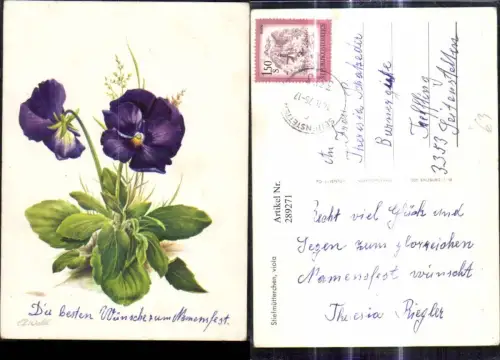 Die besten Wünsche zum Namensfest.
1.50
S
REPUBLIK ÖSTERREICH
An Frau
Theresia
3353 Seitenstetten
Artikel Nr.
289271
Stiefmütterchen, viola
63
Recht viel Glück und
Segen zum glorreichen
Namensfest wünscht
Theresia Riegler